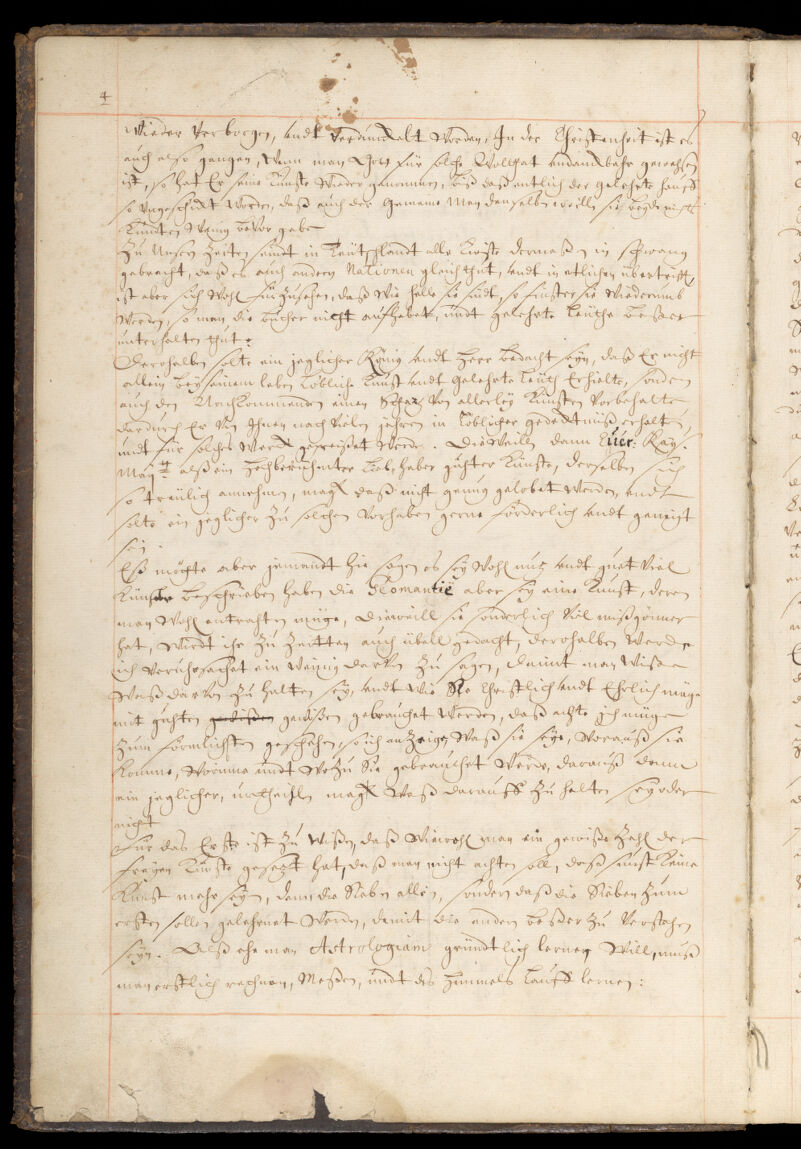 4
Wieder Verborgen, undt verdunckelt worden, In der Christenheit ist es
auch also gangen, Wenn man Gott für solche Wolthat undanckbahr gewesen
ist, so hat Er seine Künste wieder genommen, biß daß entlich der gelehrte hauff
so ungeschickt worden, daß auch der Gemeine Man denselben
Kundten wenig bevor gabe
Zu Unsern Zeiten seindt in Teütschlandt alle Künste dermaßen in schwang
gebracht, daß es auch andern Nationen gleich thut, undt in etlichen übertrifft,
ist aber sich wohl fürzusehen, daß wie helle sie sindt, so finster sie wiederumb
werden, so man die bücher nicht aufhebet, undt gelehrte Leüthe beßer
unterhalten thut:
Derohalben solte ein jeglicher König undt Herr bedacht seyn, daß Er nicht
allein bey seinem leben löbliche Kunst undt gelehrte Leüth Erhielte, sondern
auch den Nachkommenden einen Schatz von allerley Künsten vorbehalte
dardurch Er von Ihnen nach vielen jahren in löblicher gedechtnüß erhalten,
undt für solches werck gepreißet werde. Dieweilln dann Euer: Kay:
May:tt alß ein hochberühmter Liebhaber guhter Künste, derselben sich
so treülich annehmen, mag daß nicht genug gelobet werden, undt
solte ein jeglicher zu solchen vorhaben gerne förderlich undt geneigt
sein.
Eß möchte aber jemandt hie sagen es sey wohl nutz undt guet viel
Künste beschrieben haben die Geomantie aber sey eine Kunst, deren
man wohl entrahten müge, Dieweill sie sonderlich viel mißgönner
hat, wirdt ihr zu Zeitten auch übell gedacht, derohalben werde
ich veruhrsachet ein wenig darvon zu sagen, damit man wiße
waß darvon zu halten sey, undt wie Sie Christlich undt Ehrlich müge
mit guhten gewißen gebrauchet werden, daß achte ich müge
zum förmlichsten geschehen, so ich anzeige waß sie seye, worauß sie
komme, worumb undt wozu Sie gebrauchet werde, darauß dann
ein jeglicher, urtheihln mag waß darauff zu halten sey oder
nicht
Für das Erste ist zu wißen, daß wiewohl man ein gewiße Zahl der
freyen Künste gesetzt hat, daß man nicht achten soll, daß sunst keine
Kunst mehr seyn, denn die Sieben allein, sondern daß die Sieben zum
ersten sollen gelehrnet werden, damit die andern beßer zu verstehen
seyn. Alß ehe man Astrologiam gründtlich lernen will, muß
man erstlich rechnen, Meßen, undt des Himmels Lauff lernen: